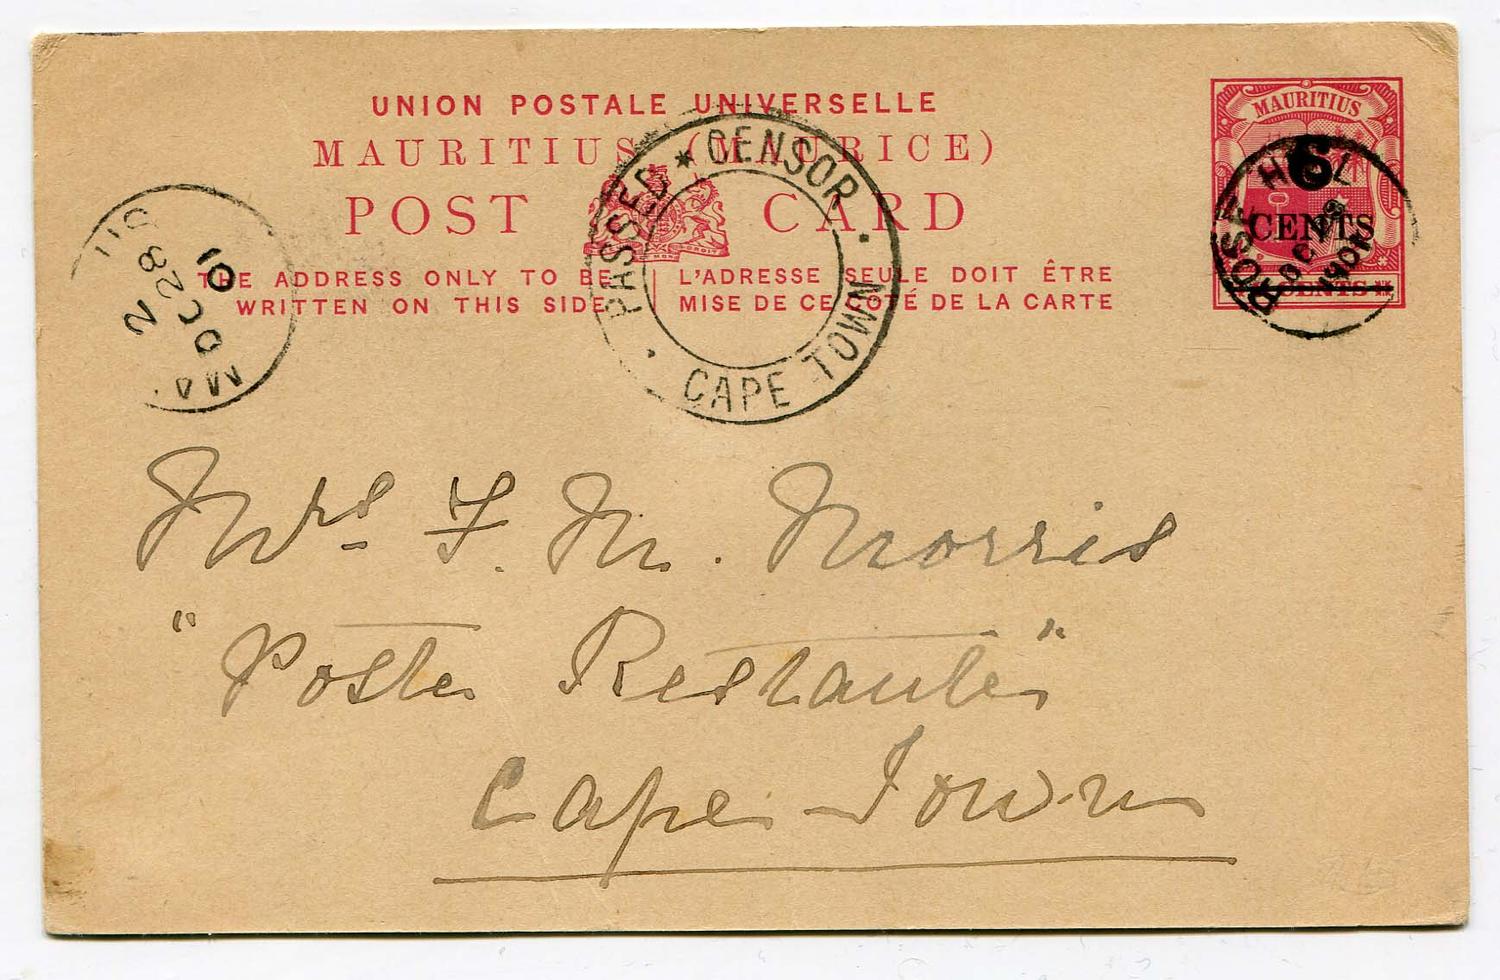 UNION POSTALE UNIVERSELLE
MAURITIUS (MAURICE)
POST CARD
THE ADDRESS ONLY TO BE
WRITTEN ON THIS SIDE
L'ADRESSE SEULE DOIT ÊTRE
MISE DE CE COTÉ DE LA CARTE
MAURITIUS
6
CENTS
CENTS
ROSE HILL
1901
PASSED * CENSOR
CAPE TOWN
2
OC 28
01
Mrs F. M. Morris
"Poste Restante"
Cape Town